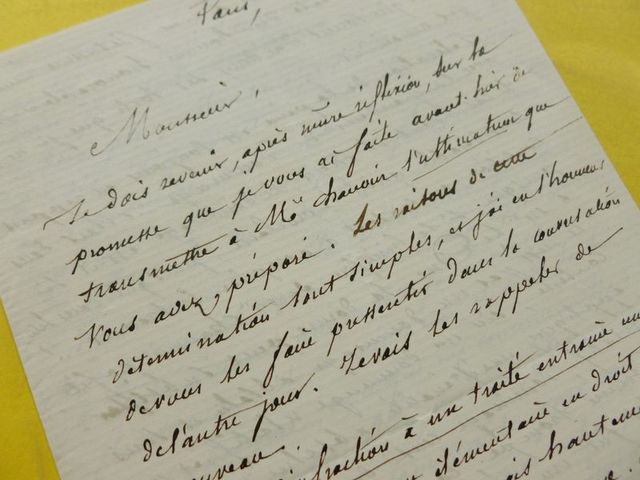 Paris,
Monsieur,
Je dois revenir, après mûre réflexion, sur la
promesse que je vous ai faite avant-hier de
transmettre à Mr Chauvin l'ultimatum que
vous avez préparé. Les raisons de cette
détermination sont simples, et j'ai eu l'honneur
de vous les faire pressentir dans la conversation
de l'autre jour. Je vais les rappeler de
nouveau.
à un traité entraîne un
élémentaire en droit
hautement